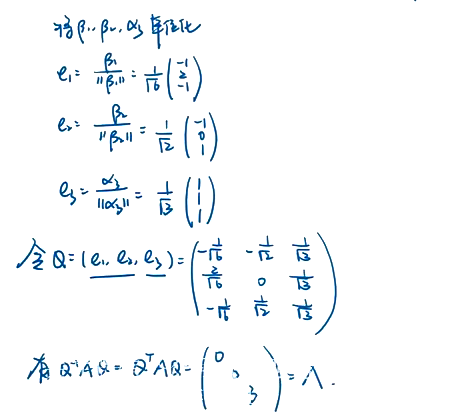 将β₁, β₂, α₃ 单位化
e₁ = β₁/‖β₁‖ = 1/√6 (-1 2 -1)
e₂ = β₂/‖β₂‖ = 1/√2 (-1 0 1)
e₃ = α₃/‖α₃‖ = 1/√3 (1 1 1)
令 Q = (e₁, e₂, e₃) = (-1/√6 -1/√2 1/√3
2/√6 0 1/√3
-1/√6 1/√2 1/√3)
有 Q⁻¹AQ = QᵀAQ = (0 0 3) = Λ.